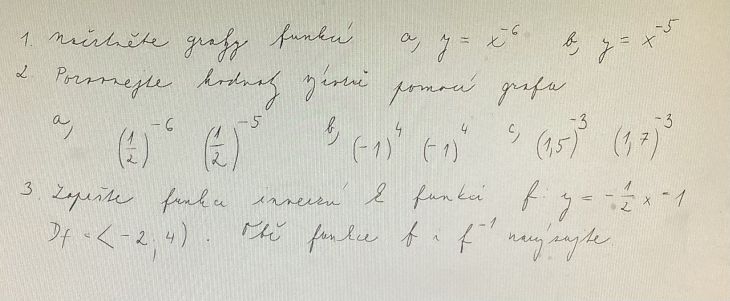 1. Načrtněte grafy funkcí a, y = x^-6 b, y = x^-5
2. Porovnejte hodnoty pomocí grafu
a, (1/2)^-6 (1/2)^-5 b, (-1)^4 (-1)^4 c, (1,5)^-3 (1,7)^-3
3. Zapište funkci inverzní k funkci f: y = -1/2 x -1
Df = <-2; 4). Obě funkce f i f^-1 narýsujte.